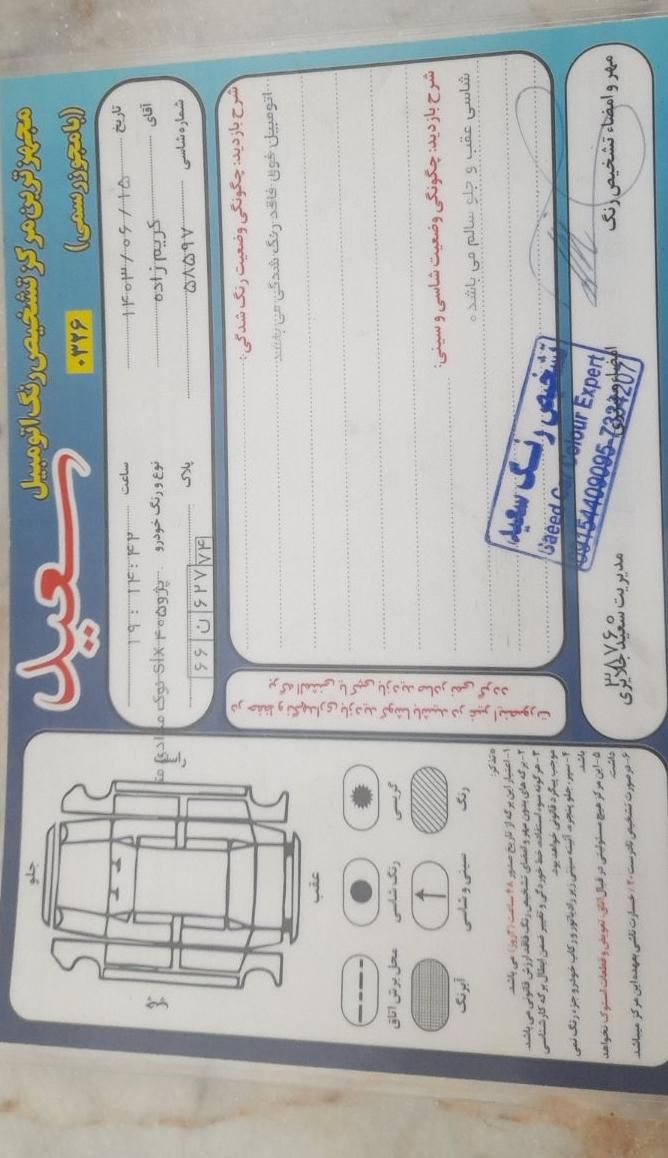 سعید
مجهزترین مرکز تشخیص رنگ اتومبیل
(با مجوز رسمی)
۰۳۲۶
تاریخ ۱۴۰۳/۰۶/۱۵
ساعت ۱۹:۱۴:۴۲
آقای کریم زاده
نوع و رنگ خودرو پژو ۴۰۵ slx نوک مدادی
شماره شاسی ۵۸۵۹۷
پلاک
۶۶ ن ۶۲۷ ۷۴
شرح بازدید: چگونگی وضعیت رنگ شدگی:
اتومبیل فوق فاقد رنگ شدگی می باشد
شرح بازدید: چگونگی وضعیت شاسی و سینی:
شاسی عقب و جلو سالم می باشد ه
تشخیص رنگ سعید
Saeed Car Colour Expert
مهر و امضاء تشخیص رنگ
امضاء مشتری
مدیریت سعید جلایری
۳۸۷۶۰
جلو
عقب
گریسی
رنگ شاسی
محل برش اتاق
رنگ
سینی و شاسی
آبرنگ
تذکر:
۱- اعتبار این برگه از تاریخ صدور ۴۸ ساعت (۲روز) می باشد.
۲- برگه های بدون مهر و امضای تشخیص رنگ فاقد ارزش قانونی می باشد.
۳- هرگونه سوء استفاده، خط خوردگی و تغییر ضمن ابطال برگه کارشناسی
موجب پیگرد قانونی خواهد بود.
۴- سپر، جلو پنجره، آئینه، سینی زیر رادیاتور و رکاب خودرو جزء رنگ نمی
باشد.
۵- این مرکز هیچ مسئولیتی در قبال اتاق تعویض و قطعات استوک نخواهد
داشت.
۶- در صورت تشخیص نادرست ۲۰٪ خسارت ناشی بعهده این مرکز میباشد.